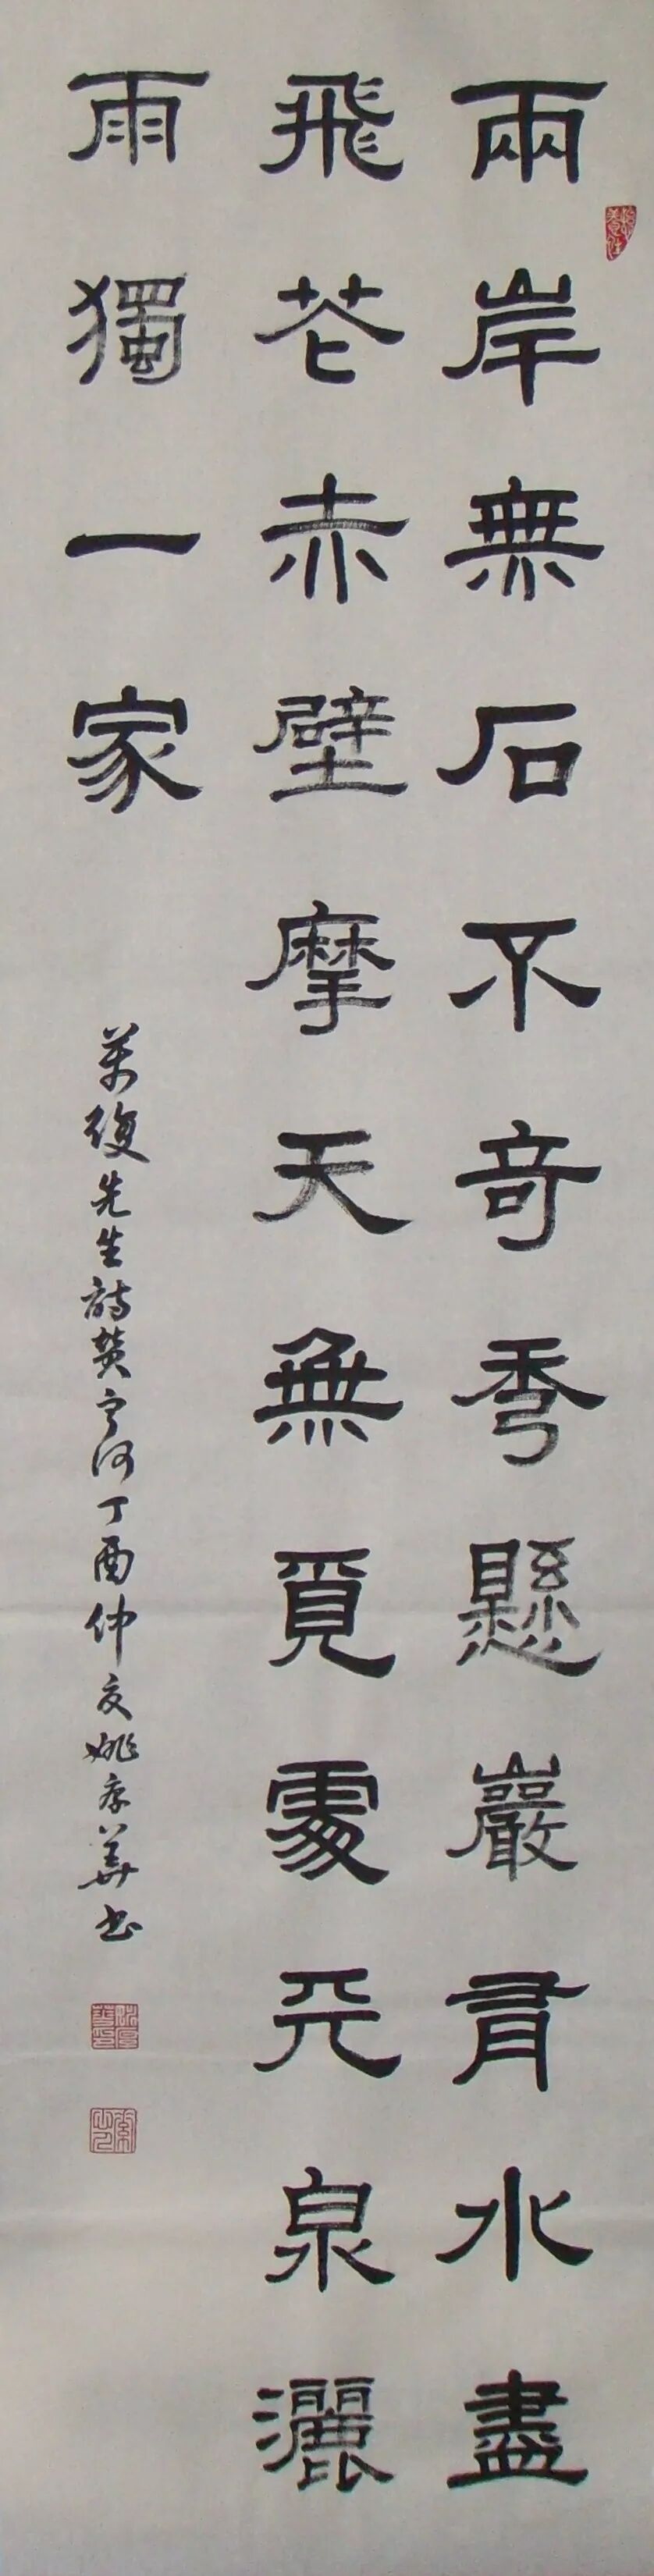 兩岸無石不奇秀懸巖有水盡
飛花赤壁摩天無覓處天泉灑
雨獨一家
萬復先生詩贊宁河丁酉仲夏姚孝華書